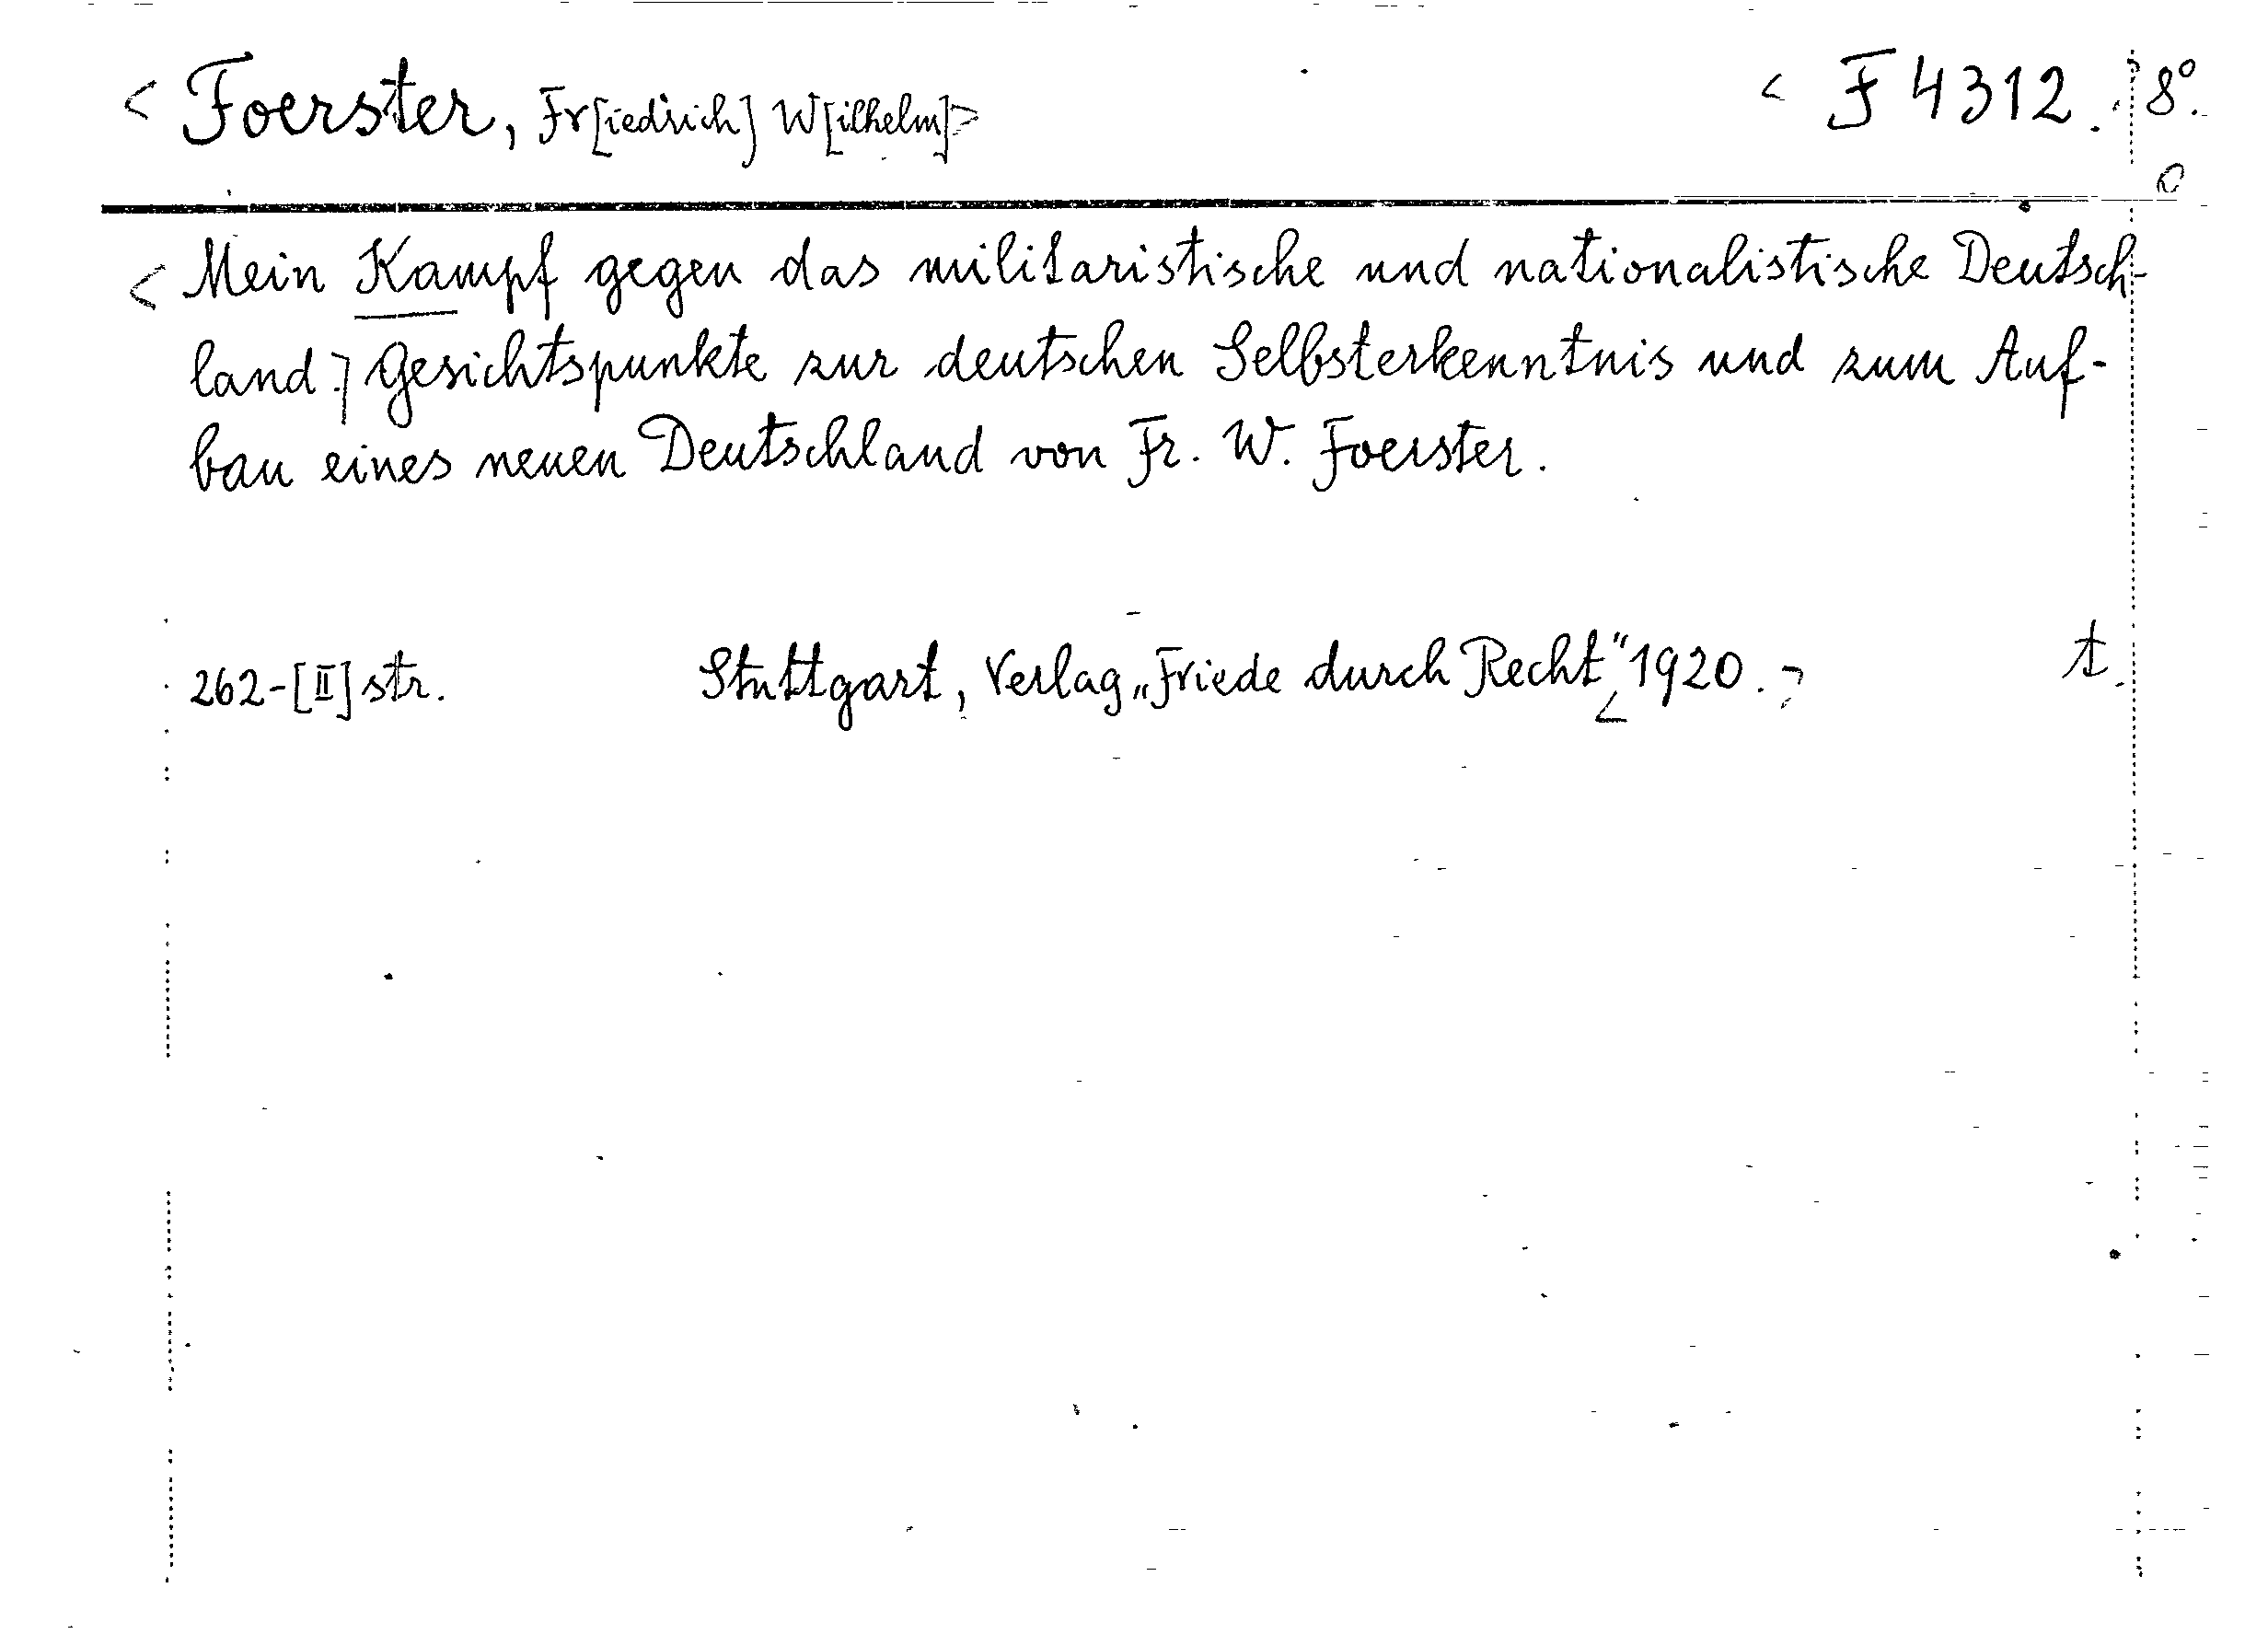 < Foerster, Fr[iedrich] W[ilhelm]> < F 4312. 8°.
< Mein Kampf gegen das militaristische und nationalistische Deutsch-
land.] Gesichtspunkte zur deutschen Selbsterkenntnis und zum Auf-
bau eines neuen Deutschland von Fr. W. Foerster.
262-[II] str. Stuttgart, Verlag „Friede durch Recht" 1920. t.